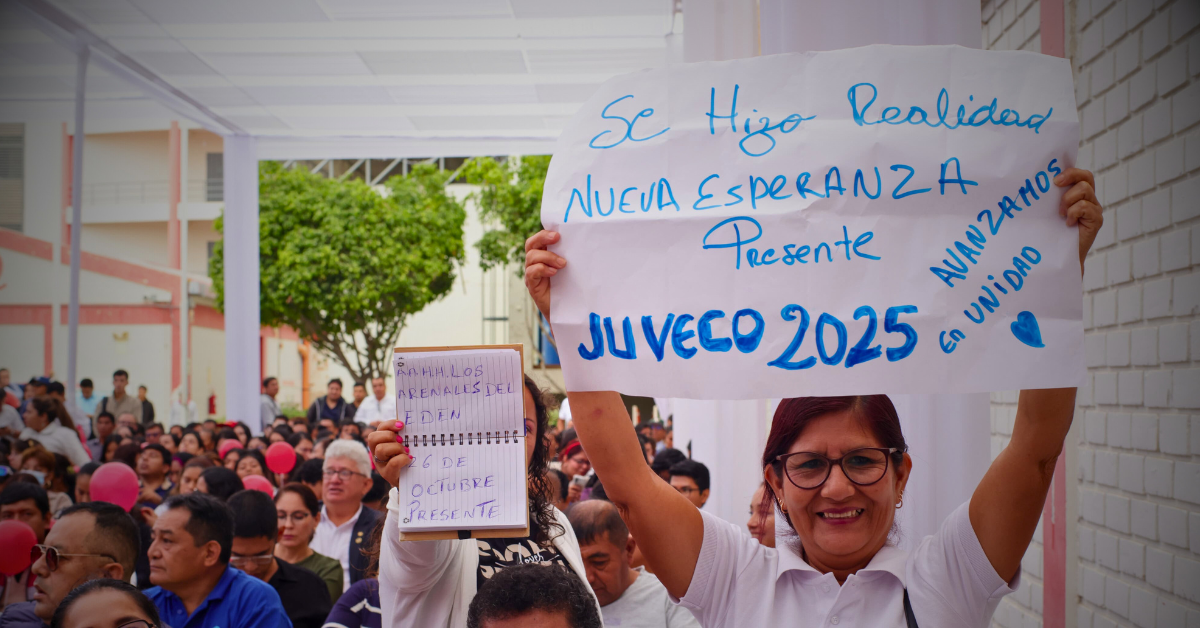 Se Hizo Realidad
NUEVA ESPERANZA
Presente
JUVECO 2025
AVANZAMOS
en UNIDAD
AAHH.LOS
ARENALES DEL
EDEN
26 DE
OCTUBRE
PRESENTE